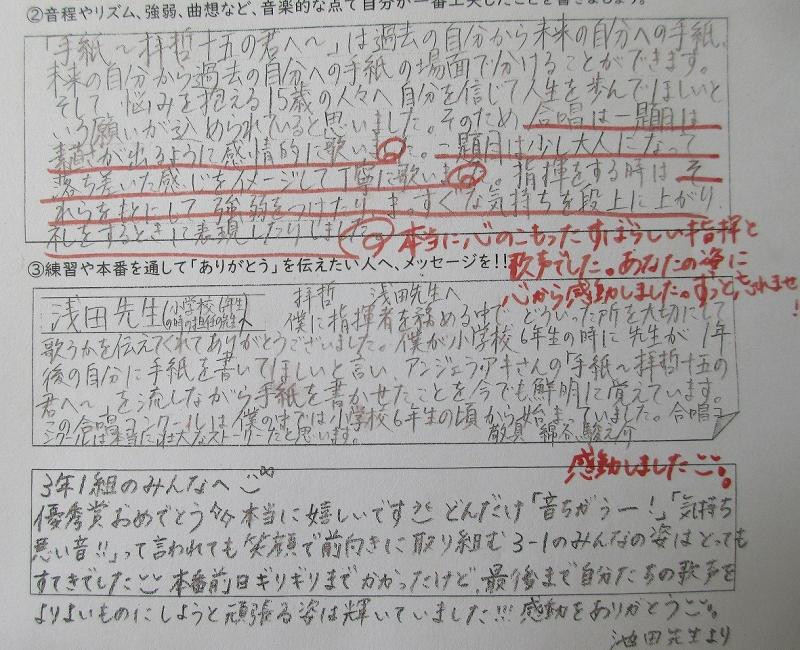 ②音程やリズム、強弱、曲想など、音楽的な点で自分が一番工夫したことを書きましょう。
「手紙〜拝啓十五の君へ〜」は過去の自分から未来の自分への手紙、
未来の自分から過去の自分への手紙の場面で分けることができます。
そして、悩みを抱える15歳の人々へ自分を信じて人生を歩んでほしいと
いう願いが込められていると思いました。そのため、合唱は一題目は
素直が出るように感情的に歌いました。二題目は少し大人になって
落ち着いた感じをイメージして丁寧に歌いました。指揮をする時は そ
れらをもとにして 強弱をつけたり、まっすぐな気持ちを段上に上がり
礼をするときに表現したりしました。
本当に心のこもったすばらしい指揮と
歌声でした。あなたの姿に
心から感動しました。ずっと忘れませ
!
③練習や本番を通して「ありがとう」を伝えたい人へ、メッセージを!!
浅田先生(小学校6年生の時の担任の先生へ
拝哲 浅田先生へ
僕に指揮者を務める中で どういった所を大切にして
歌うかを伝えてくれてありがとうございました。僕が小学校6年生の時に先生が「1年
後の自分に手紙を書いてほしいと言い アンジェラ・アキさんの「手紙〜拝哲十五の
君へ〜」を流しながら手紙を書かせたことを今でも鮮明に覚えています。
この合唱コンクールは僕の中では小学校6年生の頃から始まっていました。合唱コ
ンクールは本当に壮大なストーリーだったと思います。
感動しました。
3年1組のみんなへ
優秀賞おめでとう 本当に嬉しいです どんだけ「音ちがうー!」「気持ち
悪い音!!」って言われても笑顔で前向きに取り組む 3-1のみんなの姿はとっても
すてきでした 本番前日ギリギリまでかかったけど、最後まで自分たちの歌声を
よりよいものにしようと頑張る姿は輝いていました!!! 感動をありがとう。
池田先生より